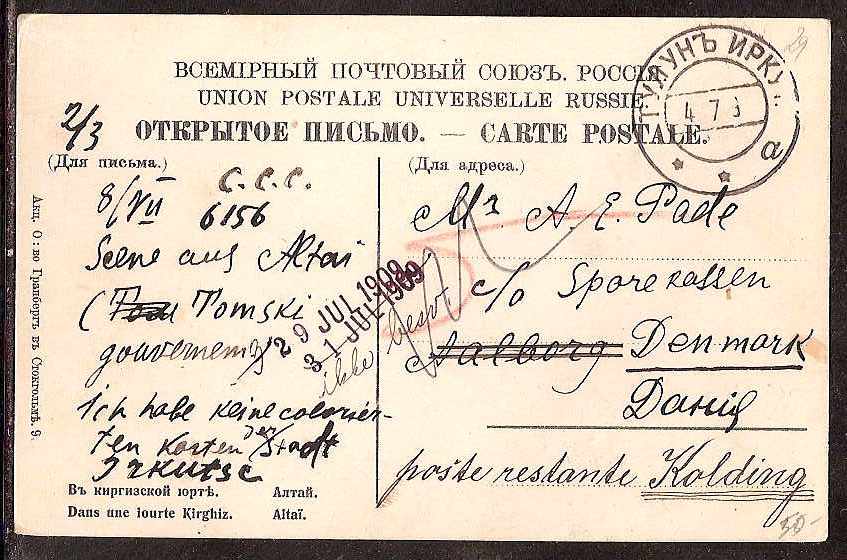 ВСЕМІРНЫЙ ПОЧТОВЫЙ СОЮЗЪ. РОССІЯ
UNION POSTALE UNIVERSELLE RUSSIE.
ОТКРЫТОЕ ПИСЬМО. — CARTE POSTALE.
ТУЛУНЪ ИРКУ
4 7
а
29
2/3
(Для письма.)
(Для адреса.)
8/VII
C.C.C.
6156
Scene aus Altai
(Tomski
gouvernem
Ich habe keine colorier-
ten Karten der Stadt
Irkutsc
29 JUL 1909
31 JUL 1909
ikke besv.
Mr A. E. Pade
c/o Sparekassen
Aalborg Denmark
Данія
poste restante Kolding
Въ киргизской юртѣ. Алтай.
Dans une iourte Kirghiz. Altaï.
Акц. О:во Гранбергъ въ Стокгольмѣ. 9.
50-